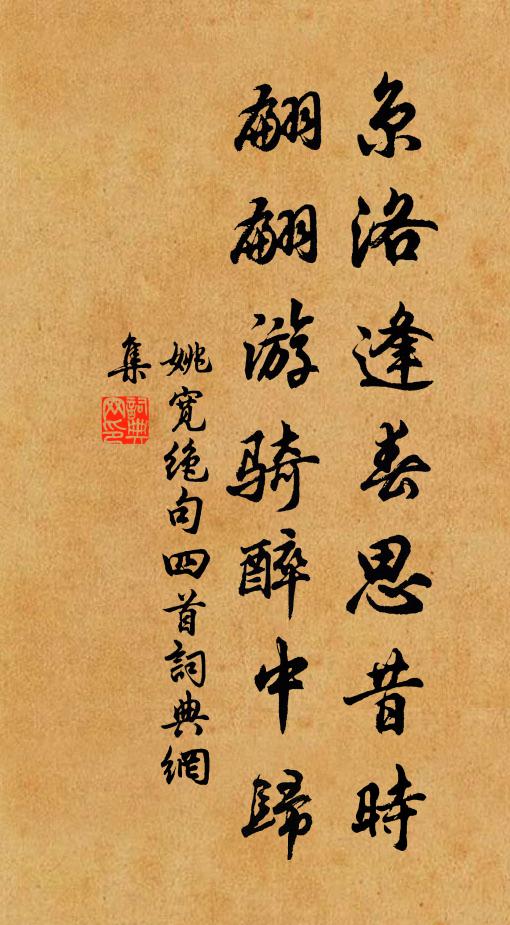 京洛逢春思昔時
翩翩游騎醉中歸
姚寬絶句四首詞典網
集
詞典网印